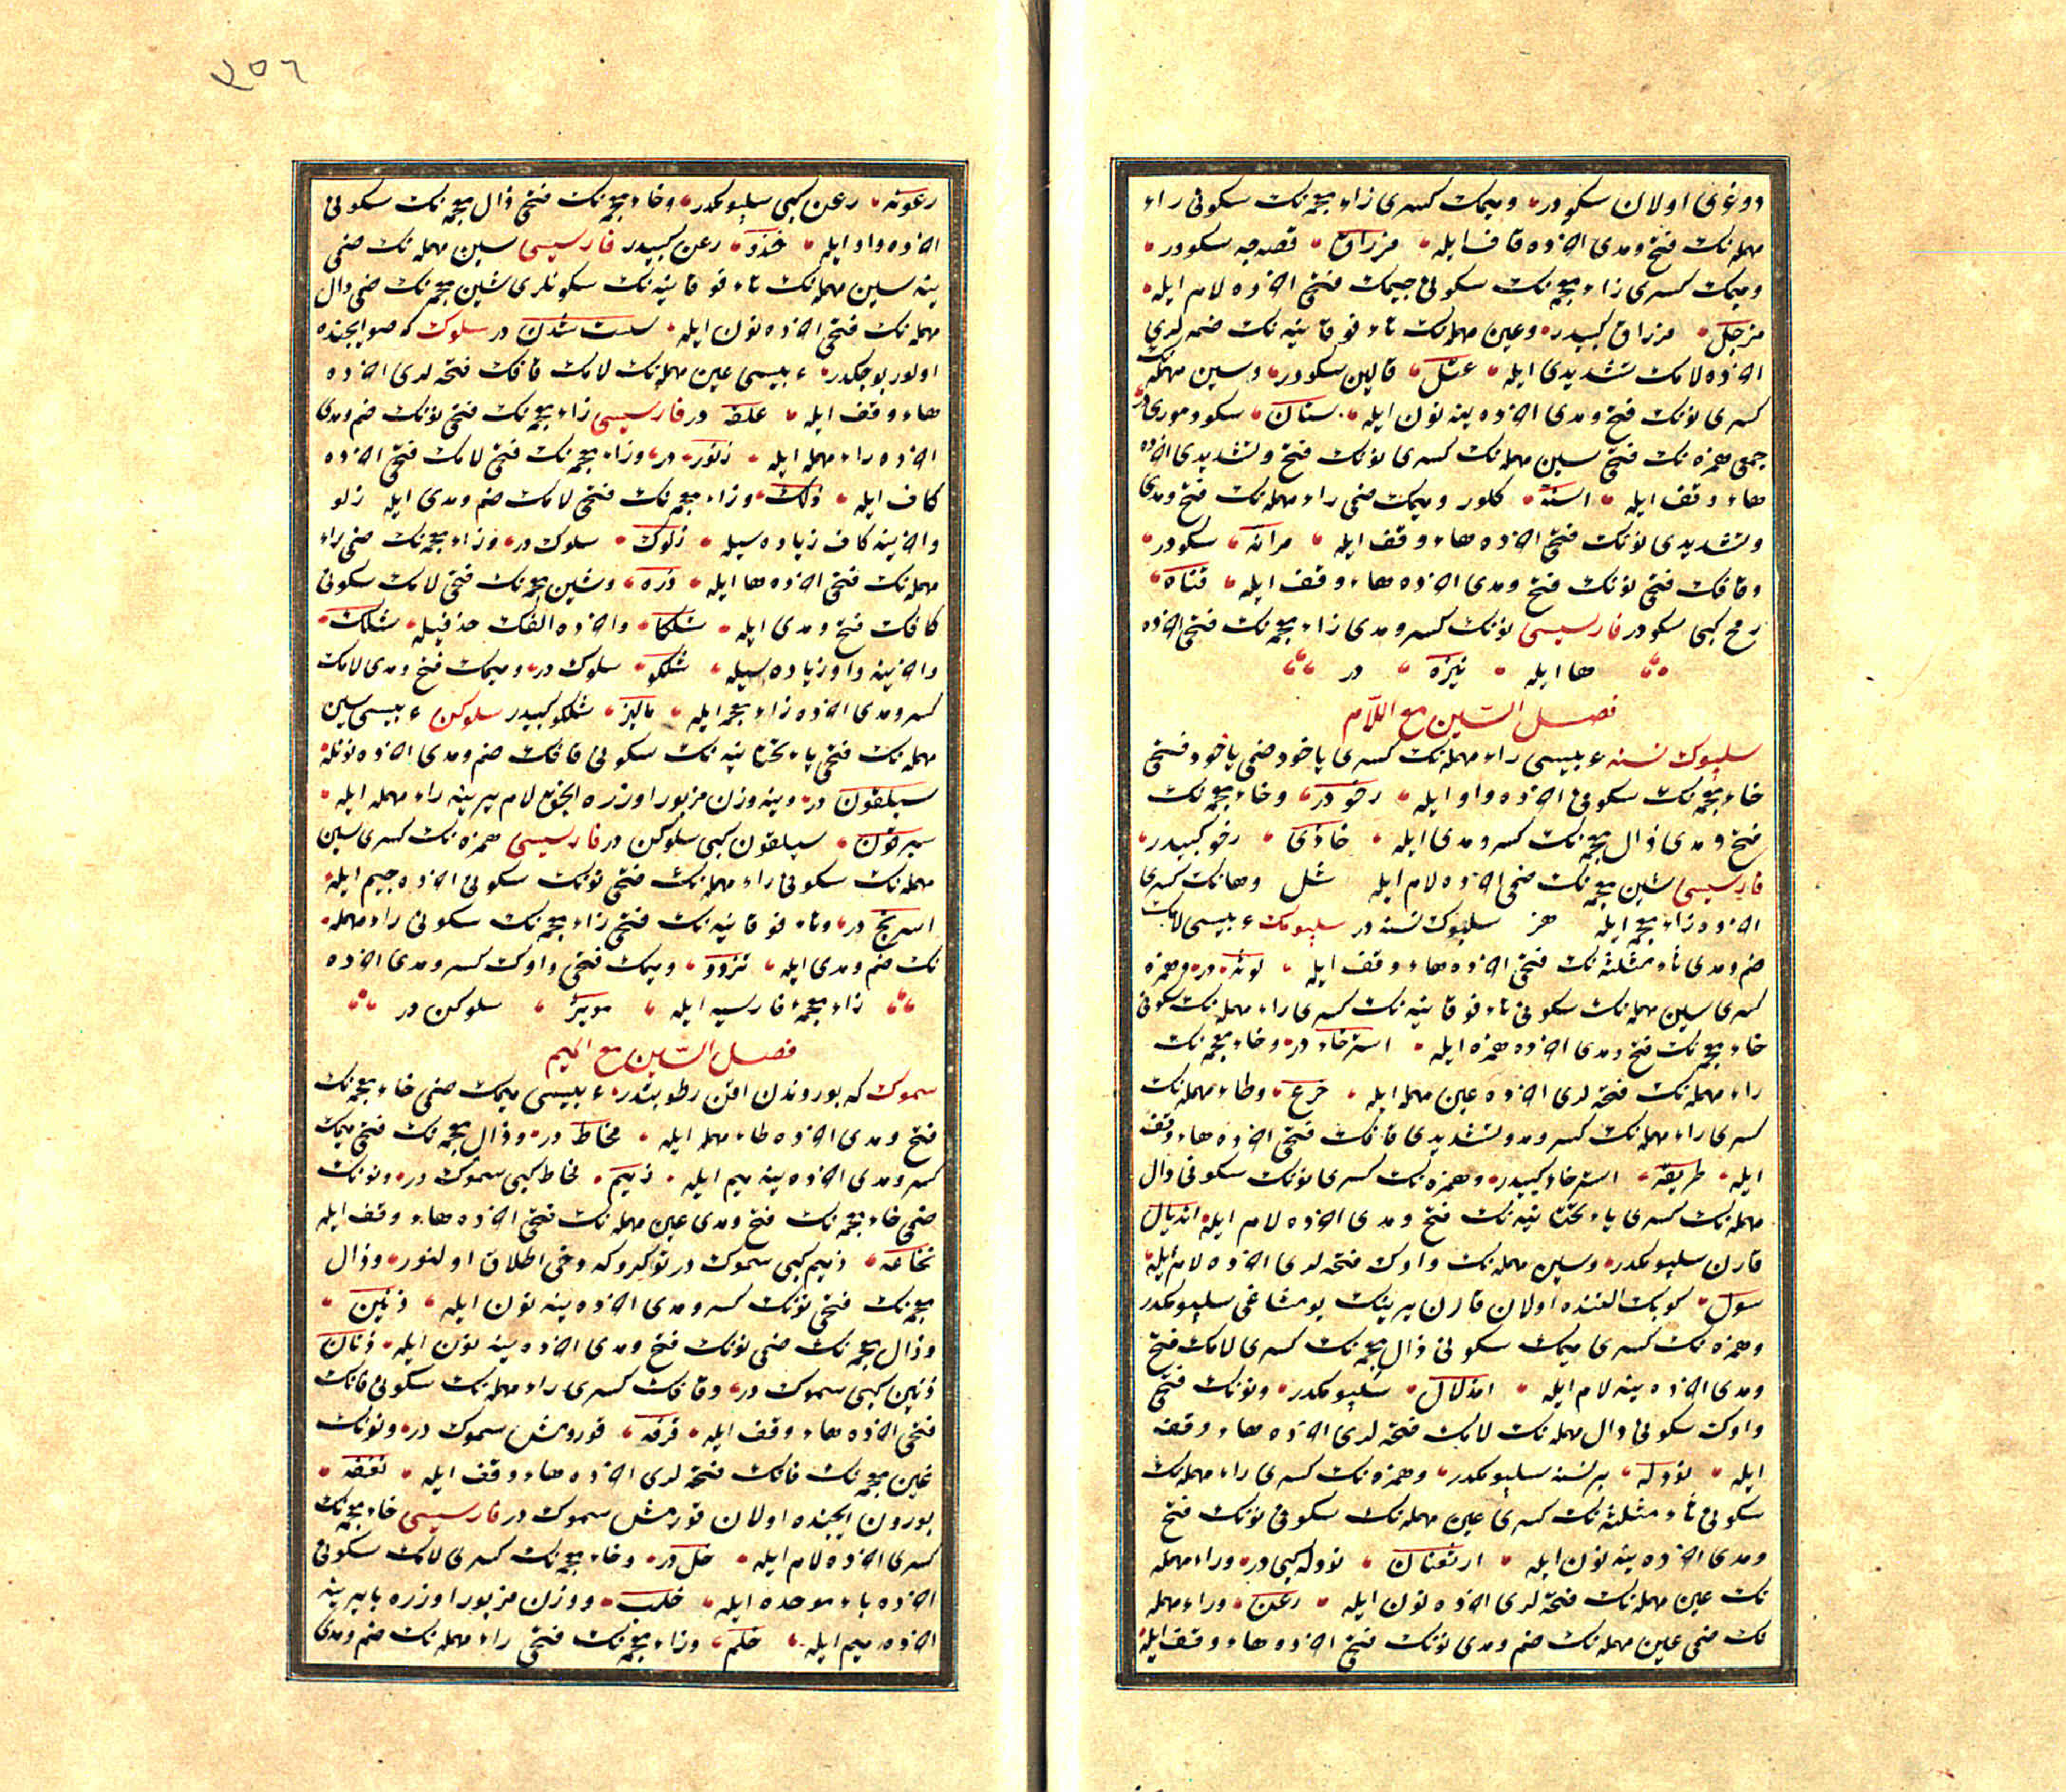 دوغری اولان سكودر ومیمك كسری زاء معجمه‌نك سكونی راء
مهمله‌نك فتح ومدی اخرده قاف ایله مزراق قصه‌جه سكودر
ومیمك كسری زاء معجمه‌نك سكونی جیمك فتحی اخرده لام ایله
مزجل مزراق كبیدر وعین مهمله‌نك تاء فوقانیه‌نك ضمه‌لری
اخرده لامك تشدیدی ایله عتل قالین سكودر وسین مهمله‌نك
كسری نونك فتح ومدی اخرده ینه نون ایله سنان سكودموری‌در
جمعی همزه‌نك فتحی سین مهمله‌نك كسری نونك فتح وتشدیدی اخرده
هاء وقف ایله اسنه كلور ومیمك ضمی راء مهمله‌نك فتح ومدی
وتشدیدی نونك فتحی اخرده هاء وقف ایله مرانه سكودر
وقافك فتحی نونك فتح ومدی اخرده هاء وقف ایله قناه
رمح كبی سكودر فارسیسی نونك كسر ومدی زاء معجمه‌نك فتحی اخرده
ها ایله نیزه در
فصل السین مع اللام
سلپوك نسنه عربیسی راء مهمله‌نك كسری یاخود ضمی یاخود فتحی
خاء معجمه‌نك سكونی اخرده واو ایله رخو در وخاء معجمه‌نك
فتح ومدی ذال معجمه‌نك كسر ومدی ایله خاذی رخو كبیدر
فارسیسی شین معجمه‌نك ضمی اخرده لام ایله شل وهانك كسری
اخرده زاء معجمه ایله هز سلپوك نسنه در سلپومك عربیسی لامك
ضم ومدی ثاء مثلثه‌نك فتحی اخرده هاء وقف ایله لوثه در وهمزه
كسری سین مهمله‌نك سكونی تاء فوقانیه‌نك كسری راء مهمله‌نك سكونی
خاء معجمه‌نك فتح ومدی اخرده همزه ایله استرخاء در وخاء معجمه‌نك
راء مهمله‌نك فتحه‌لری اخرده عین مهمله ایله خرع وطاء مهمله‌نك
كسری راء مهمله‌نك كسر ومد وتشدیدی قافك فتحی اخرده هاء وقف
ایله طریقه استرخاء كبیدر وهمزه‌نك كسری نونك سكونی دال
مهمله‌نك كسری یاء تحتانیه‌نك فتح ومدی اخرده لام ایله اندیال
قارن سلپومكدر وسین مهمله‌نك واوك فتحه‌لری اخرده لام ایله
سول كوبك التنده اولان قارن یرینك یومشاغی سلپومكدر
وهمزه‌نك كسری میمك سكونی ذال معجمه‌نك كسری لامك فتح
ومدی اخرده ینه لام ایله امذلال سلپومكدر ونونك فتحی
واوك سكونی دال مهمله‌نك لامك فتحه‌لری اخرده هاء وقف
ایله نودله بر نسنه سلپومكدر وهمزه‌نك كسری راء مهمله‌نك
سكونی ثاء مثلثه‌نك كسری عین مهمله‌نك سكونی نونك فتح
ومدی اخرده ینه نون ایله ارثعنان نودله كبی در وراء مهمله
نك عین مهمله‌نك فتحه‌لری اخرده نون ایله رعن وراء مهمله
نك ضمی عین مهمله‌نك ضم ومدی نونك فتحی اخرده هاء وقف ایله
٢٥٦
رعونه رعن كبی سلپومكدر وخاء معجمه‌نك فتحی ذال معجمه‌نك سكونی
اخرده واو ایله خذو رعن كبیدر فارسیسی سین مهمله‌نك ضمی
ینه سین مهمله‌نك تاء فوقانیه‌نك سكونلری شین معجمه‌نك ضمی دال
مهمله‌نك فتحی اخرده نون ایله سست شدن در سلوك كه صو ایچنده
اولور بوجكدر عربیسی عین مهمله‌نك لامك قافك فتحه‌لری اخرده
هاء وقف ایله علقه در فارسیسی زاء معجمه‌نك فتحی لونك ضم ومدی
اخرده راء مهمله ایله زلور در وزاء معجمه‌نك فتحی لامك فتحی اخرده
كاف ایله زلك وزاء معجمه‌نك فتحی لامك ضم ومدی ایله زلو
واخرینه كاف زیاده‌سیله زلوك سلوك در وزاء معجمه‌نك ضمی راء
مهمله‌نك فتحی اخرده ها ایله زره وشین معجمه‌نك فتحی لامك سكونی
كافك فتح ومدی ایله شلكا واخرده الفك حذفیله شلك
واخرینه واو زیاده‌سیله شلكو سلوك در ومیمك فتح ومدی لامك
كسر ومدی اخرده زاء معجمه ایله مالیز شلكو كبیدر سلوكن عربیسی سین
مهمله‌نك فتحی یاء تحتانیه‌نك سكونی قافك ضم ومدی اخرده نونله
سیلقون در وینه وزن مزبور اوزره انجق لام یرینه راء مهمله ایله
سیرقون سیلقون كبی سلوكن در فارسیسی همزه‌نك كسری سین
مهمله‌نك سكونی راء مهمله‌نك فتحی نونك سكونی اخرده جیم ایله
اسرنج در وتاء فوقانیه‌نك فتحی زاء معجمه‌نك سكونی راء مهمله
نك ضم ومدی ایله تزرو ومیمك فتحی واوك كسر ومدی اخرده
زاء معجمۀ فارسیه ایله مویژ سلوكن در
فصل السین مع المیم
سموك كه بوروندن اقن رطوبتدر عربیسی میمك ضمی خاء معجمه‌نك
فتح ومدی اخرده طاء مهمله ایله مخاط در وذال معجمه‌نك فتحی میمك
كسر ومدی اخرده ینه میم ایله ذمیم مخاط كبی سموك در ونونك
ضمی خاء معجمه‌نك فتح ومدی عین مهمله‌نك فتحی اخرده هاء وقف ایله
نخاعه ذمیم كبی سموك در توكروكه دخی اطلاق اولنور وذال
معجمه‌نك فتحی نونك كسر ومدی اخرده ینه نون ایله ذنین
وذال معجمه‌نك ضمی نونك فتح ومدی اخرده ینه نون ایله ذنان
ذنین كبی سموك در وقافك كسری راء مهمله‌نك سكونی فانك
فتحی اخرده هاء وقف ایله قرفه قورومش سموك در ونونك
غین معجمه‌نك فانك فتحه‌لری اخرده هاء وقف ایله نغفه
بورون ایچنده اولان قورمش سموك در فارسیسی خاء معجمه‌نك
كسری اخرده لام ایله خل در وخاء معجمه‌نك كسری لامك سكونی
اخرده باء موحده ایله خلب ووزن مزبور اوزره با یرینه
اخرده میم ایله خلم وزاء معجمه‌نك فتحی راء مهمله‌نك ضم ومدی